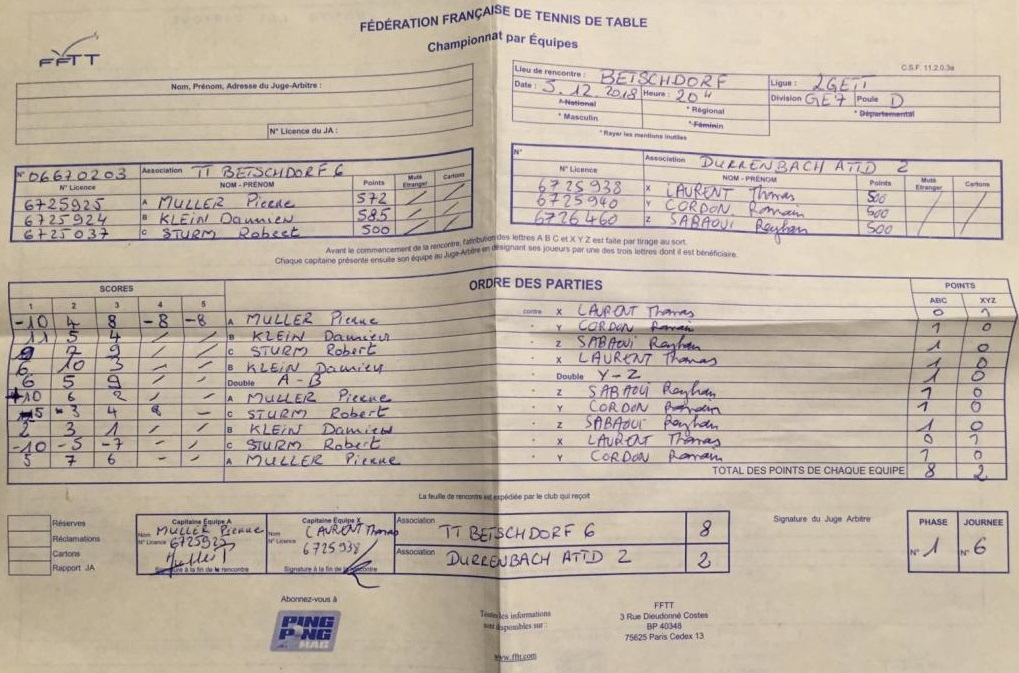 FÉDÉRATION FRANÇAISE DE TENNIS DE TABLE
Championnat par Équipes
FFTT
C.S.F. 11.2.0.3a
Nom, Prénom, Adresse du Juge-Arbitre :
N° Licence du JA :
Lieu de rencontre : BETSCHDORF Ligue : LGETT
Date : 5.12.2018 Heure : 20H Division GE7 Poule D
* National * Régional * Départemental
* Masculin * Féminin
* Rayer les mentions inutiles
N° 06670203 Association TT BETSCHDORF 6
N° Licence NOM - PRÉNOM Points Muté Etranger Cartons
6725925 A MULLER Pierre 572 / /
6725924 B KLEIN Damien 585 / /
6725037 C STURM Robert 500 / /
N° Association DURRENBACH ATTD 2
N° Licence NOM - PRÉNOM Points Muté Etranger Cartons
6725938 X LAURENT Thomas 500
6725940 Y CORDON Romain 500
6726460 Z SABAOUI Rayhan 500
Avant le commencement de la rencontre, l'attribution des lettres A B C et X Y Z est faite par tirage au sort.
Chaque capitaine présente ensuite son équipe au Juge-Arbitre en désignant ses joueurs par une des trois lettres dont il est bénéficiaire.
SCORES ORDRE DES PARTIES POINTS
1 2 3 4 5 ABC XYZ
-10 4 8 -8 -8 A MULLER Pierre contre X LAURENT Thomas 0 1
11 5 4 / / B KLEIN Damien " Y CORDON Romain 1 0
9 7 9 / / C STURM Robert " Z SABAOUI Rayhan 1 0
6 10 3 / / B KLEIN Damien " X LAURENT Thomas 1 0
6 5 9 / / Double A-B Double Y-Z 1 0
10 6 2 / / A MULLER Pierre " Z SABAOUI Rayhan 1 0
-5 3 4 8 - C STURM Robert " Y CORDON Romain 1 0
2 3 1 / / B KLEIN Damien " Z SABAOUI Rayhan 1 0
-10 -5 -7 - / C STURM Robert " X LAURENT Thomas 0 1
5 7 6 - - A MULLER Pierre " Y CORDON Romain 1 0
TOTAL DES POINTS DE CHAQUE EQUIPE 8 2
La feuille de rencontre est expédiée par le club qui reçoit
Réserves
Réclamations
Cartons
Rapport JA
Capitaine Équipe A
Nom MULLER Pierre
N° Licence 6725925
Signature à la fin de la rencontre
Capitaine Équipe X
Nom LAURENT Thomas
N° Licence 6725938
Signature à la fin de la rencontre
Association TT BETSCHDORF 6 8
Association DURRENBACH ATTD 2 2
Signature du Juge Arbitre
PHASE JOURNEE
N° 1 N° 6
Abonnez-vous à
PING PONG MAG
Toutes les informations
sont disponibles sur :
www.fftt.com
FFTT
3 Rue Dieudonné Costes
BP 40348
75625 Paris Cedex 13